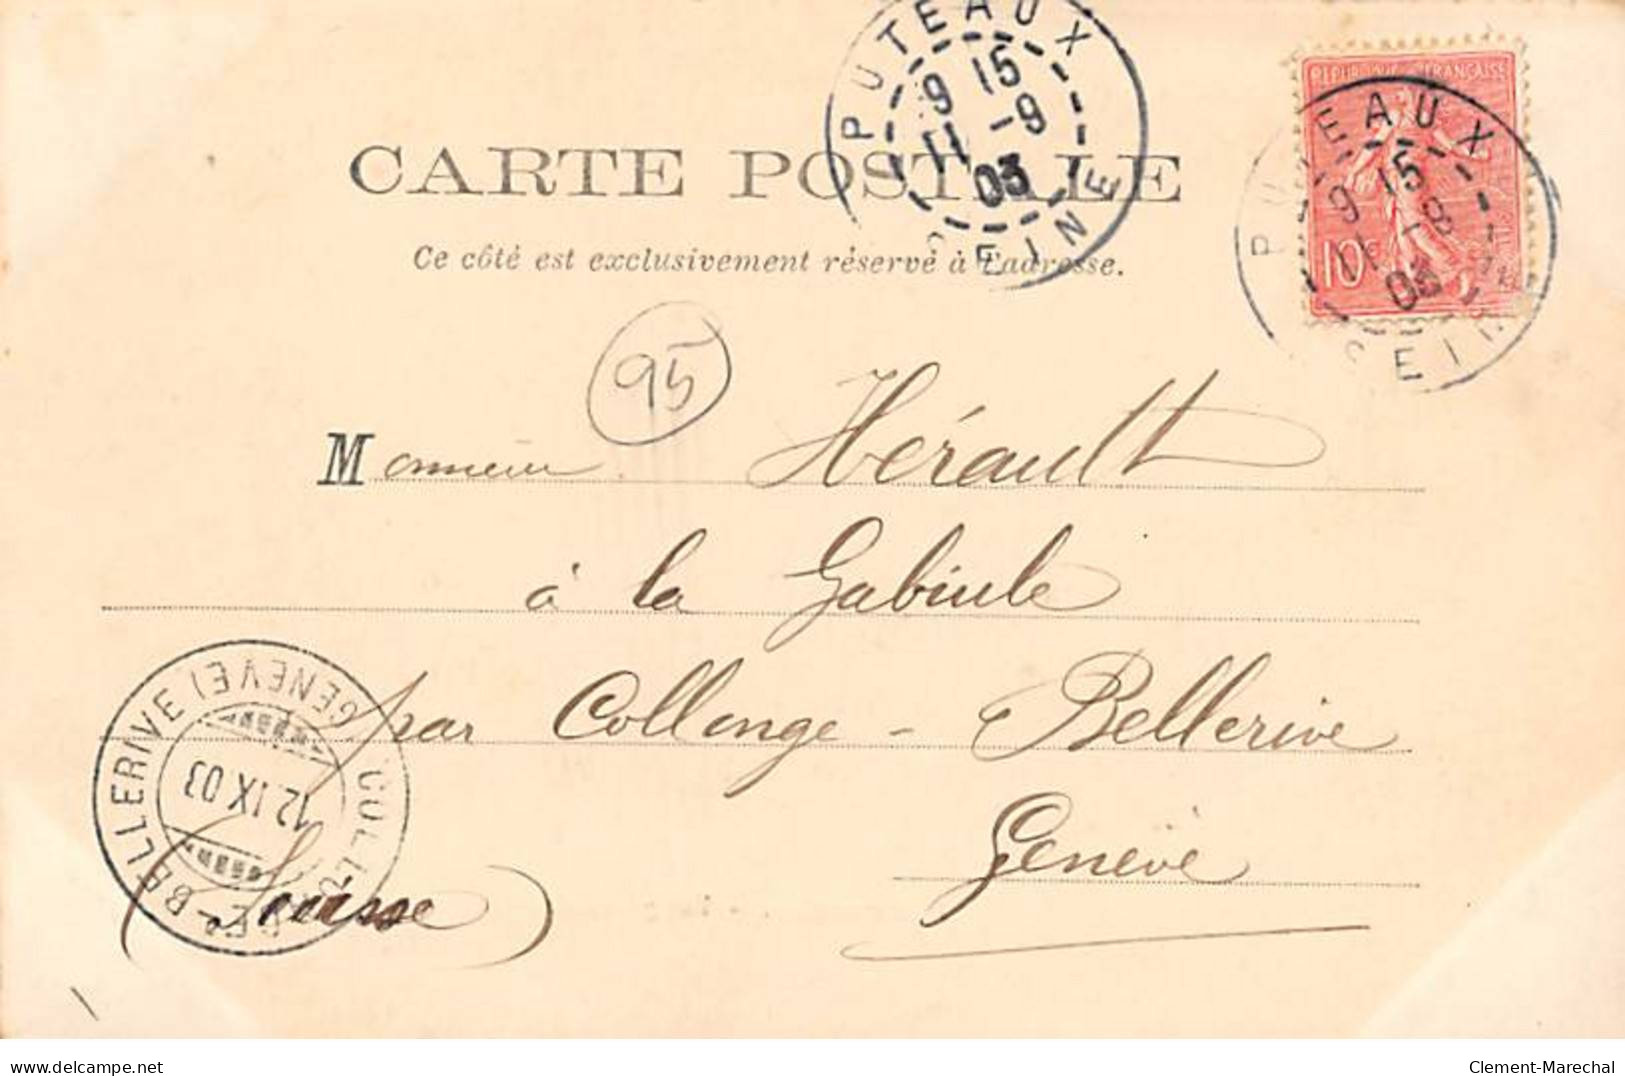 PUTEAUX
9 15
11 -9
03
SEINE
REPUBLIQUE FRANÇAISE
10c
PUTEAUX
9 15
11 -9
03
SEINE
CARTE POSTALE
Ce côté est exclusivement réservé à l'adresse.
95
Monsieur Hérault
à la Gabiule
par Collonge - Bellerive
Genève
(Suisse)
COLLONGE-BELLERIVE (GENÈVE)
12.IX.03
delcampe.net
Clement-Marechal